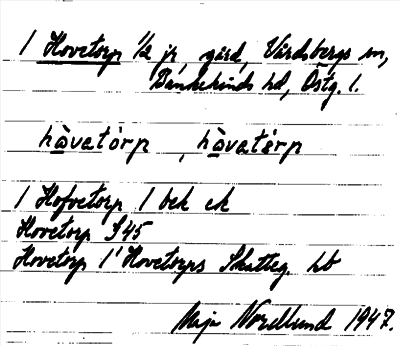 1 Hovetorp 1/2 jr, gård, Vårdsbergs sn,
Bankekinds hd, Östg. l.
hàvatórp, hàvatórp
1 Hofvetorp 1 bek ek
Hovetorp S45
Hovetorp 1' Hovetorps Skatteg. hb
Maja Nordlund 1947.